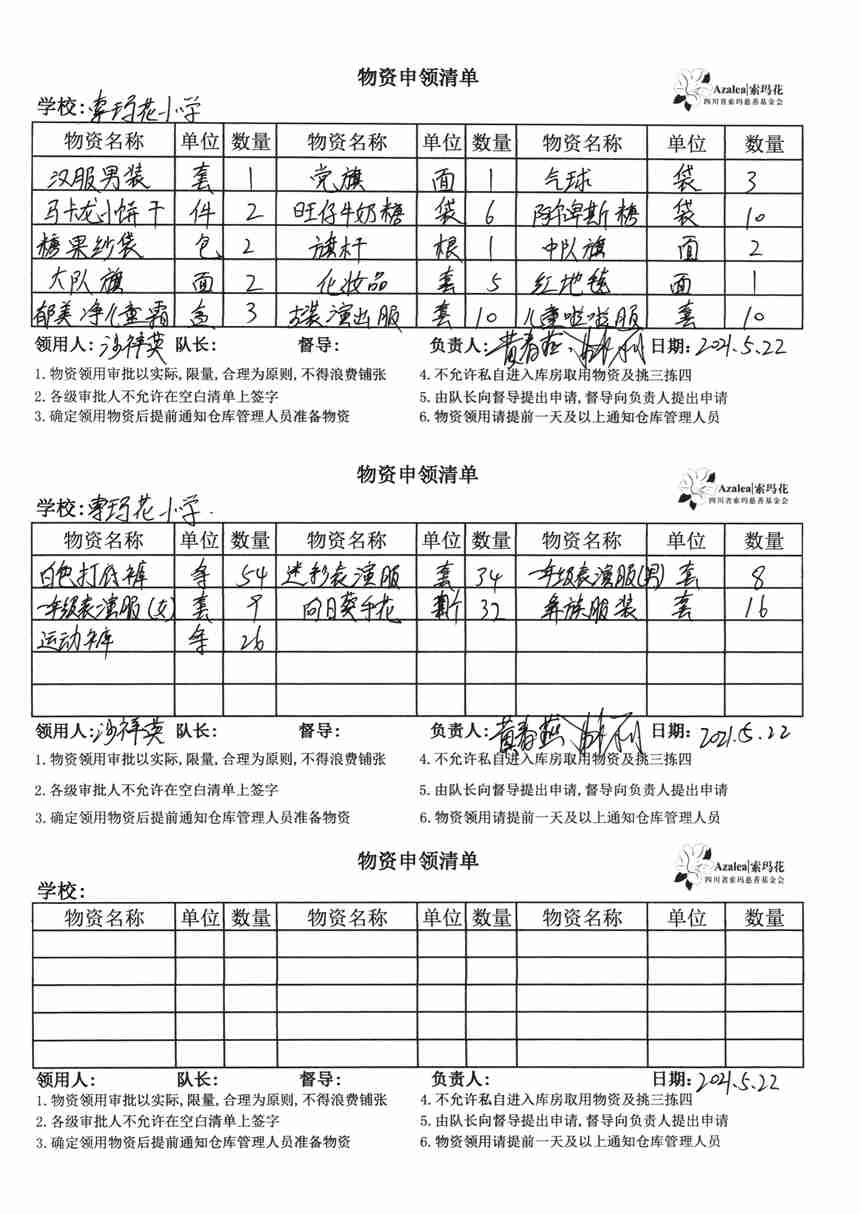 物资申领清单
Azalea|索玛花
四川省索玛慈善基金会
学校:索玛花小学
物资名称 单位 数量 物资名称 单位 数量 物资名称 单位 数量
汉服男装 套 1 党旗 面 1 气球 袋 3
马卡龙小饼干 件 2 旺仔牛奶糖 袋 6 阿尔卑斯糖 袋 10
糖果纱袋 包 2 旗杆 根 1 中队旗 面 2
大队旗 面 2 化妆品 套 5 红地毯 面 1
郁美净儿童霜 盒 3 古装演出服 套 10 儿童啦啦服 套 10
领用人:沙祥英 队长: 督导: 负责人:黄春燕 日期:2021.5.22
1.物资领用审批以实际,限量,合理为原则,不得浪费铺张 4.不允许私自进入库房取用物资及挑三拣四
2.各级审批人不允许在空白清单上签字 5.由队长向督导提出申请,督导向负责人提出申请
3.确定领用物资后提前通知仓库管理人员准备物资 6.物资领用请提前一天及以上通知仓库管理人员
物资申领清单
Azalea|索玛花
四川省索玛慈善基金会
学校:索玛花小学.
物资名称 单位 数量 物资名称 单位 数量 物资名称 单位 数量
白色打底裤 条 54 迷彩表演服 套 34 一年级表演服(男) 套 8
一年级表演服(女) 套 9 向日葵手花 32 彝族服装 套 16
运动裤 条 26
领用人:沙祥英 队长: 督导: 负责人:黄春燕 日期:2021.5.22
1.物资领用审批以实际,限量,合理为原则,不得浪费铺张 4.不允许私自进入库房取用物资及挑三拣四
2.各级审批人不允许在空白清单上签字 5.由队长向督导提出申请,督导向负责人提出申请
3.确定领用物资后提前通知仓库管理人员准备物资 6.物资领用请提前一天及以上通知仓库管理人员
物资申领清单
Azalea|索玛花
四川省索玛慈善基金会
学校:
物资名称 单位 数量 物资名称 单位 数量 物资名称 单位 数量
领用人: 队长: 督导: 负责人: 日期:2021.5.22
1.物资领用审批以实际,限量,合理为原则,不得浪费铺张 4.不允许私自进入库房取用物资及挑三拣四
2.各级审批人不允许在空白清单上签字 5.由队长向督导提出申请,督导向负责人提出申请
3.确定领用物资后提前通知仓库管理人员准备物资 6.物资领用请提前一天及以上通知仓库管理人员